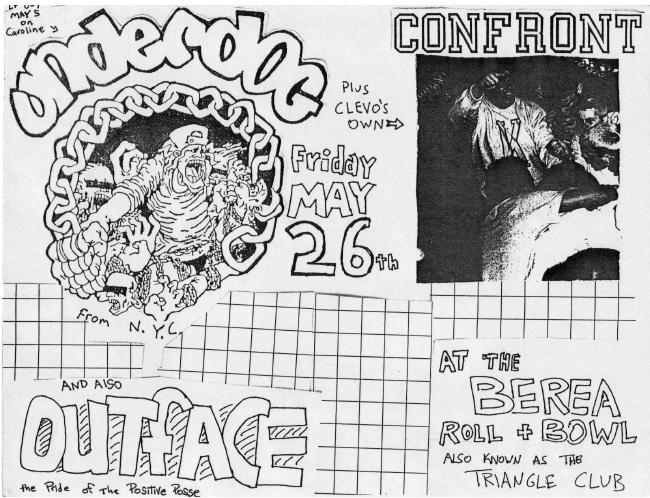 LP OUT
MAY 5
on
Caroline
underdog
CONFRONT
PLUS
CLEVO'S
OWN
Friday
MAY
26th
From N.Y.C.
AND ALSO
OUTfACE
the Pride of The Positive Posse
AT THE
BEREA
ROLL + BOWL
ALSO KNOWN AS THE
TRIANGLE CLUB